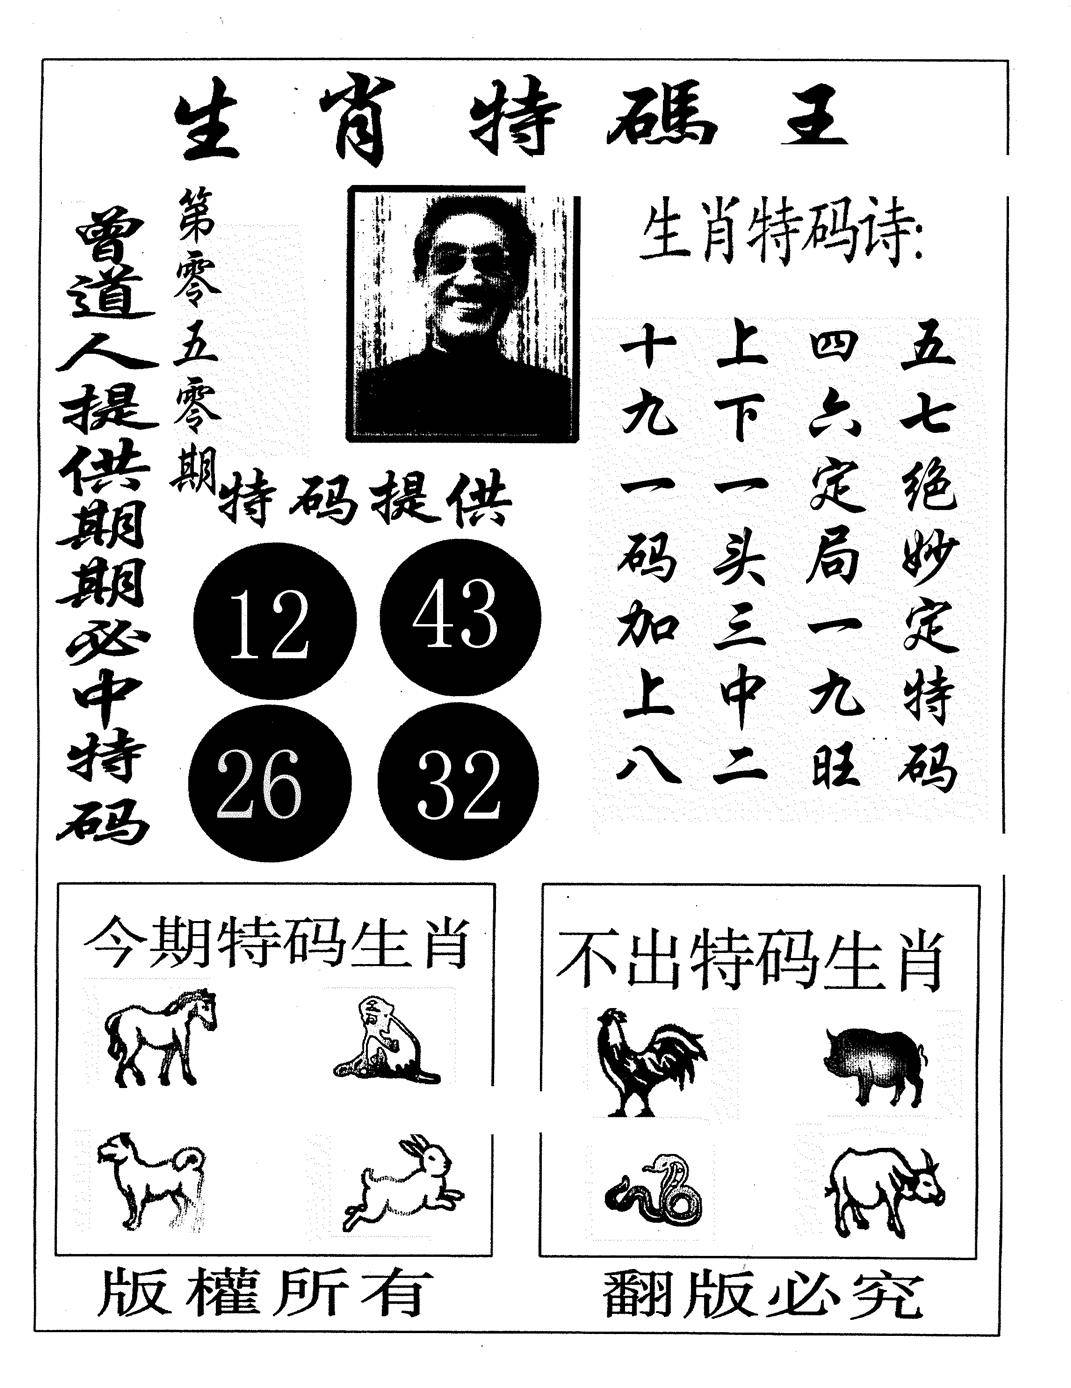 生肖特碼王
曾道人提供期期必中特码
第零五零期
生肖特码诗:
五七绝妙定特码
四六定局一九旺
上下一头三中二
十九一码加上八
特码提供
12
43
26
32
今期特码生肖
不出特码生肖
版權所有
翻版必究